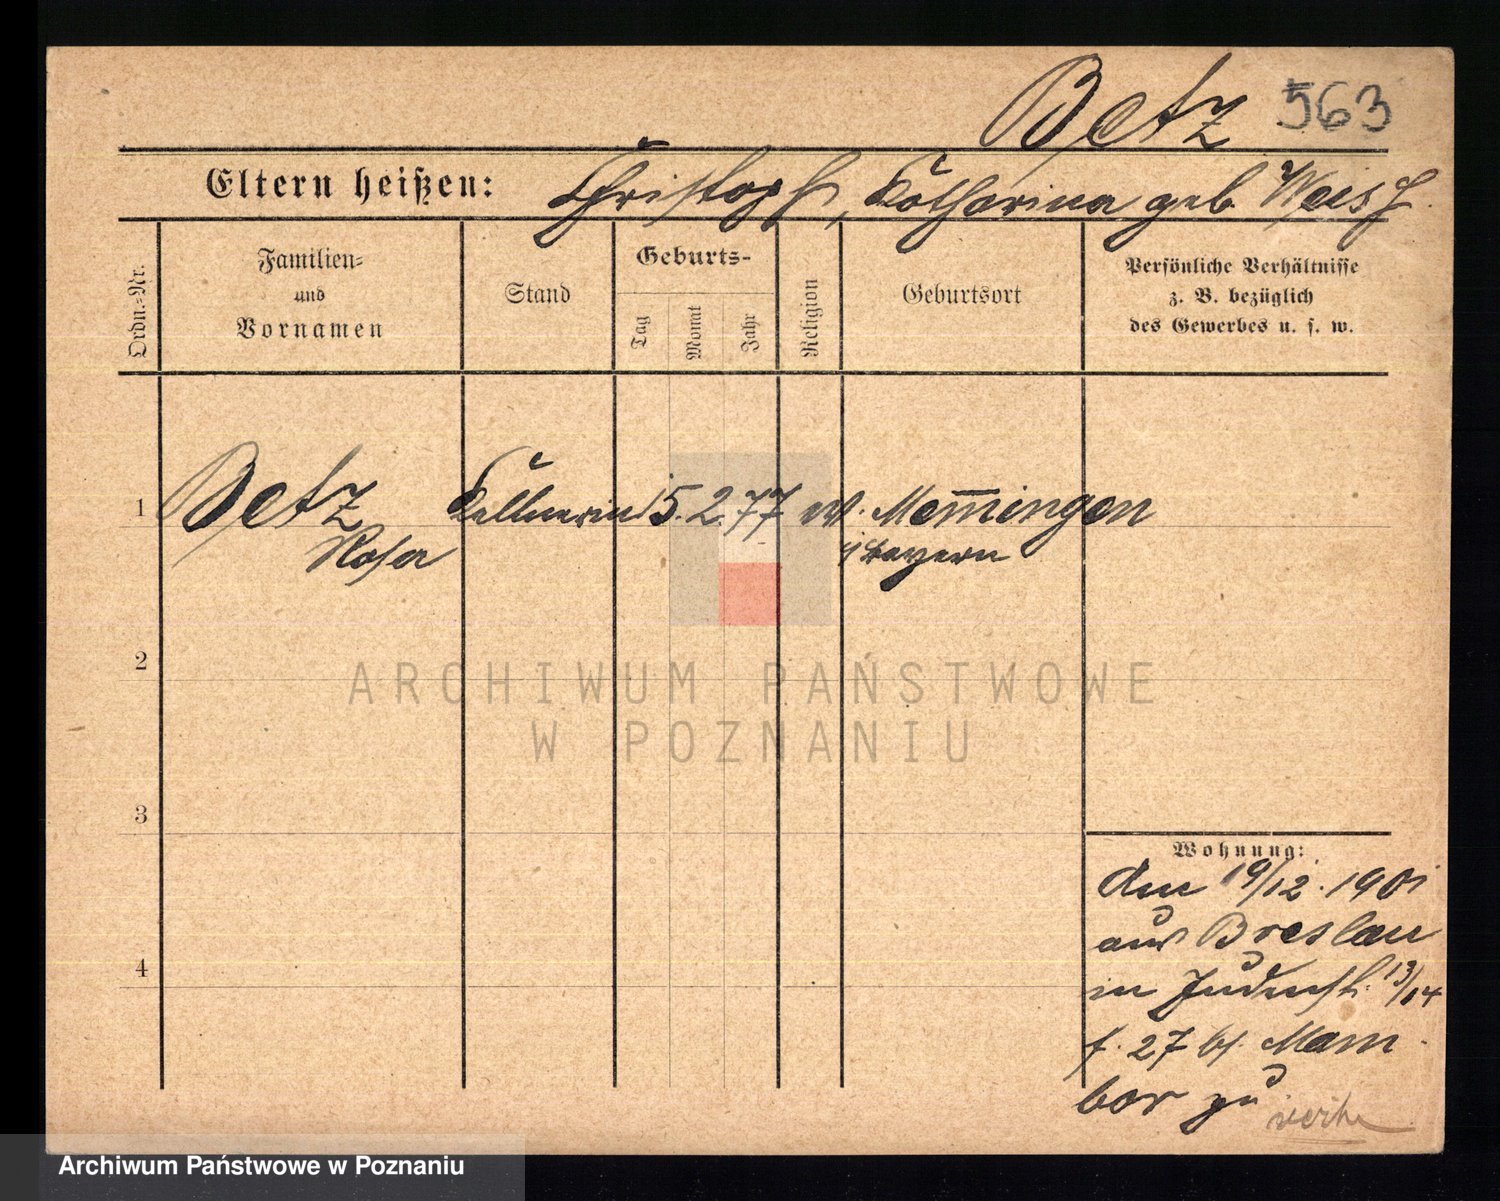 Betz 563
Eltern heißen: Christoph, Katharina geb Weiss
Ordn.-Nr.
Familien-
und
Vornamen
Stand
Geburts-
Tag
Monat
Jahr
Religion
Geburtsort
Persönliche Verhältnisse
z. B. bezüglich
des Gewerbes u. s. w.
1 Betz Kellnerin 15. 2. 77 Mem̅ingen
Rosa Bayern
2
ARCHIWUM PAŃSTWOWE
W POZNANIU
3
Wohnung:
den 19/12. 1901
aus Breslau
in Judenst. 13/14
f. 27 bf. Mam-
bor zu
4
Archiwum Państwowe w Poznaniu